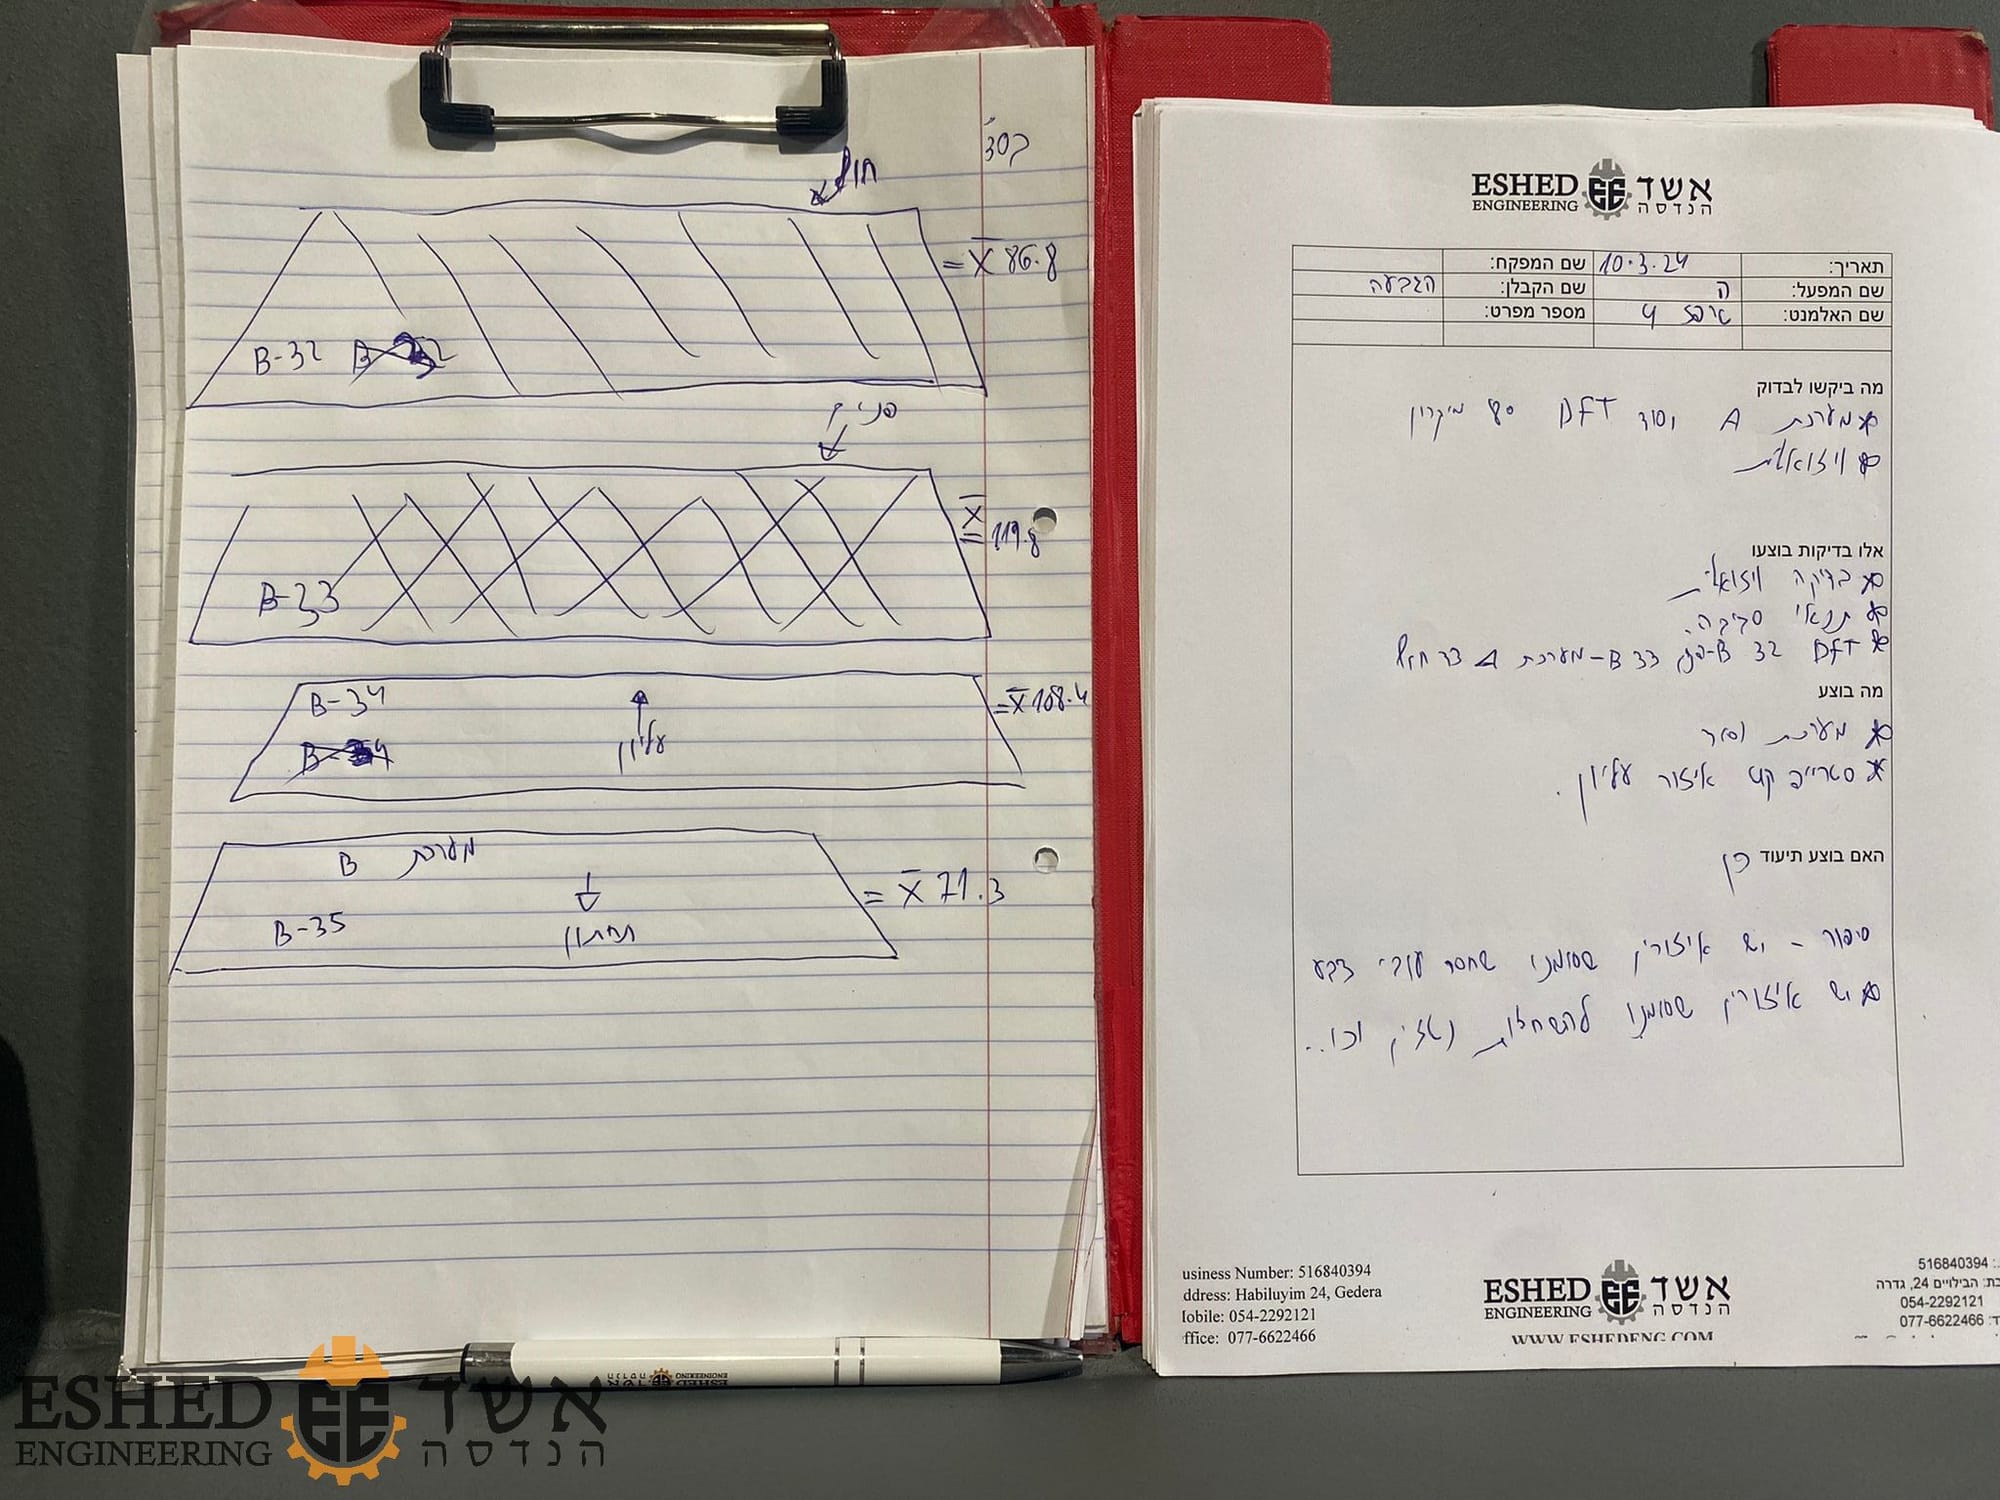 חוץ
= X̄ 86.8
B-32
פנים
X̄ = 119.8
B-33
B-34
= X̄ 108.4
עליון
מערכת B
= X̄ 71.3
B-35
תחתון
ESHED ENGEERING אשד הנדסה
תאריך: 10.3.24 שם המפקח:
שם המפעל: ה שם הקבלן: הגבעה
שם האלמנט: ארגז 4 מספר מפרט:
מה ביקשו לבדוק
* מערכת A יסוד DFT 80 מיקרון
* ויזואלית
אלו בדיקות בוצעו
* בדיקה ויזואלית
* תנאי סביבה.
* DFT B 32-פנים B 33 – מערכת A צד חוץ
מה בוצע
* מערכת יסוד
* סטרייפ קוט איזור עליון.
האם בוצע תיעוד כן
סיפור - יש איזורים שסומנו שחסר עובי צבע
* יש איזורים שסומנו להשחזות נטזים וכו..
usiness Number: 516840394
ddress: Habiluyim 24, Gedera
lobile: 054-2292121
ffice: 077-6622466
ESHED ENGINEERING אשד הנדסה
WWW.ESHEDENG.COM
516840394
הבילויים 24, גדרה
054-2292121
077-6622466
ESHED ENGINEERING אשד הנדסה
ESHED ENGINEERING אשד הנדסה